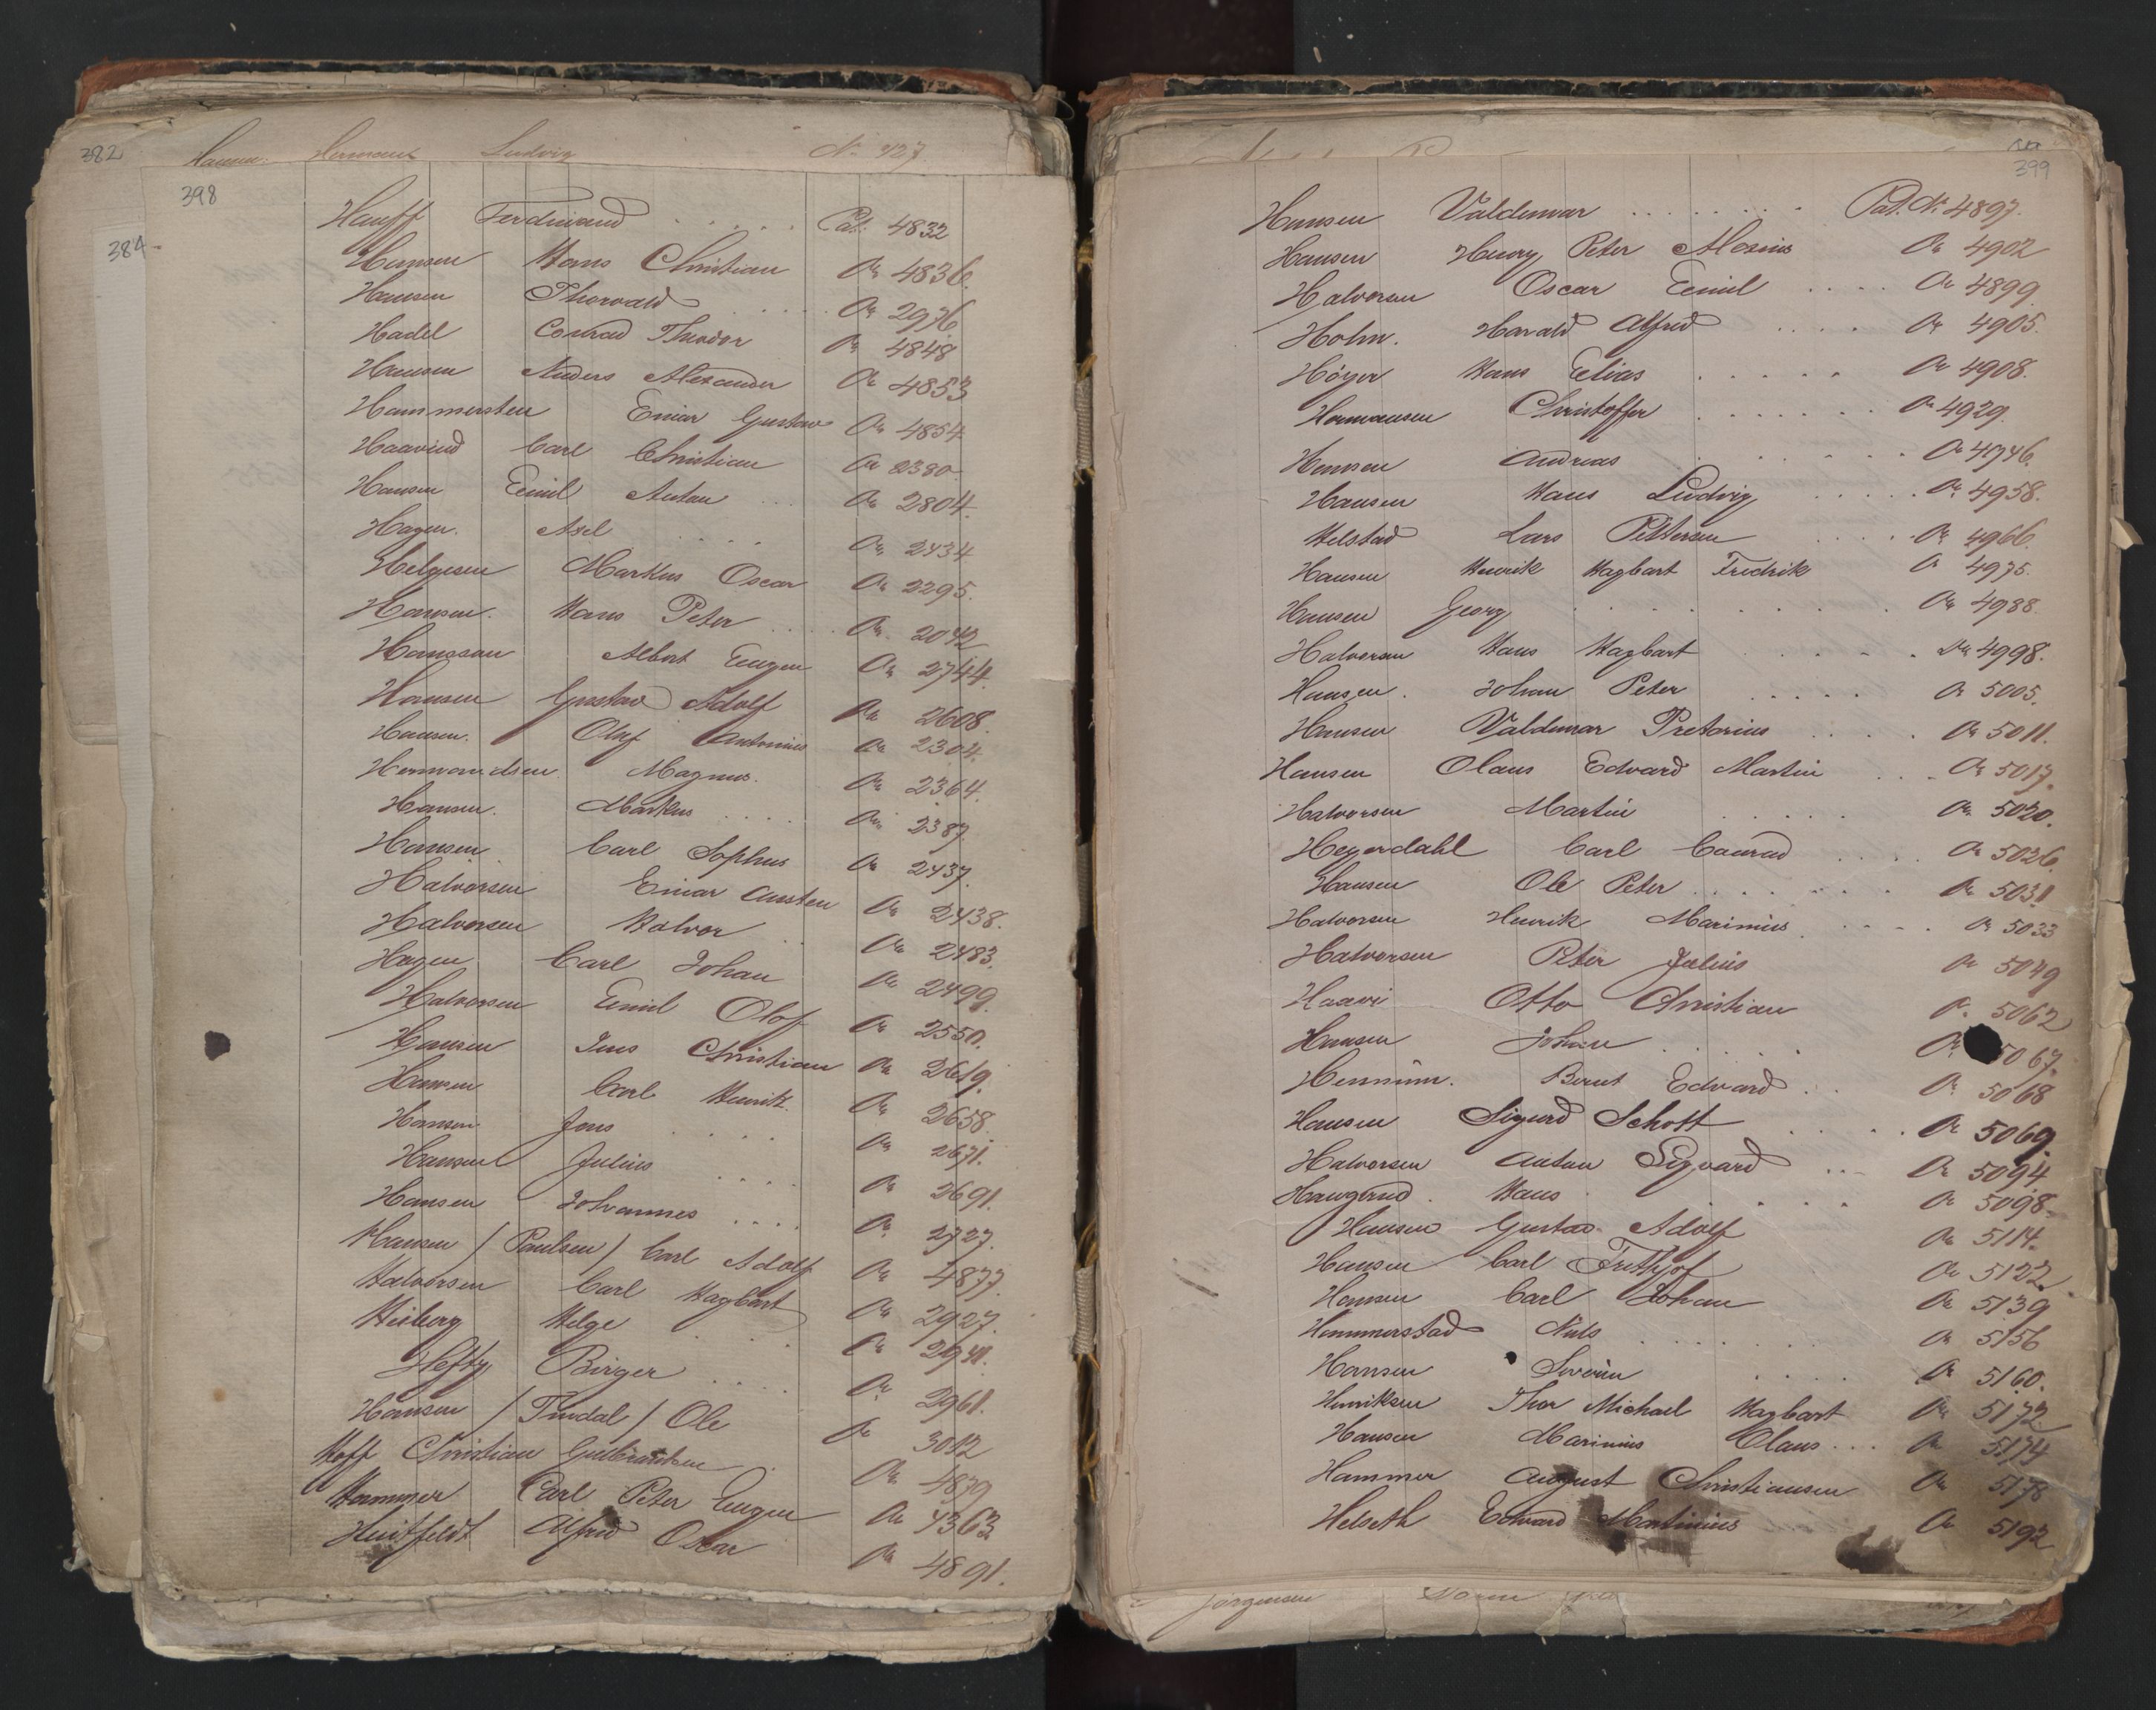 382
Hansen Hermann Ludvig No 427
398
384
Hauff Ferdinand Pat. 4832
Hansen Hans Christian 4836.
Hansen Thorvald 2976
Hadel Conrad Theodor 4848
Hansen Anders Alexander 4853
Hammersten Einar Gustav 4854
Haavind Carl Christian 2380
Hansen Emil Anton 2804.
Hagen. Axel 2434
Helgesen Markus Oscar 2295.
Hansen. Hans Peter 2042
Hanssen Albert Eugen 2744.
Hansen Gustav Adolf 2608.
Hansen. Olaf Antonius 2304.
Hermandsen Magnus. 2364.
Hansen. Markus 2387
Hansen Carl Sophus 2437.
Halvorsen Einar Austen 2438.
Halvorsen Halvor 2483.
Hagen Carl Johan 2499.
Halvorsen Emil Olaf 2550.
Hansen Jens Christian 2619.
Hansen Carl Henrik. 2658
Hansen Jens 2671.
Hansen Julius 2691.
Hansen Johannes 2727.
Hansen / Paulsen / Carl Adolf 4877.
Halvorsen Carl Hagbart 2927.
Heiberg Helge 2941.
Hefty Birger 2961.
Hansen / Tindal / Ole 3012
Hoff Christian Gulbrandsen 4879
Hammer Carl Peter Eugen 4363
Huitfeldt Alfred Oscar 4891.
399
Hansen Valdemar Pat. Nr 4897.
Hansen Henry Peter Alosius 4902
Halvorsen Oscar Emil 4899
Holm. Harald Alfred 4905.
Höyer Hans Elias 4908.
Hermansen Christoffer 4929.
Hansen Andreas 4946.
Hansen Hans Ludvig 4958.
Helstad Lars Pettersen 4966.
Hansen Henrik Hagbart Fredrik 4975.
Hansen Georg 4988.
Halvorsen Hans Hagbart 4998.
Hansen. Johan Peter 5005.
Hansen Valdemar Pretorius 5011.
Hansen Olaus Edvard Martin 5017.
Halvorsen Martin 5020.
Heyerdahl Carl Conrad 5026.
Hansen Ole Peter 5031
Halvorsen Henrik Marinius 5033
Halvorsen Peter Julius 5049
Haavi Otto Christian 5062
Hansen Johan 5067.
Hennum. Bernt Edvard 5068
Hansen Sigurd Schott 5069.
Halvorsen Anton Sigvard 5094
Haugerud. Hans 5098.
Hansen Gustav Adolf 5114.
Hansen Carl Frithjof 5122
Hansen Carl Johan 5139
Hammerstad Nils 5156
Hansen Severin 5160.
Henriksen Thor Michael Hagbart 5172
Hansen Marinius Olaus 5174
Hammer August Christiansen 5178
Helseth Edvard Martinius 5192
Jörgensen